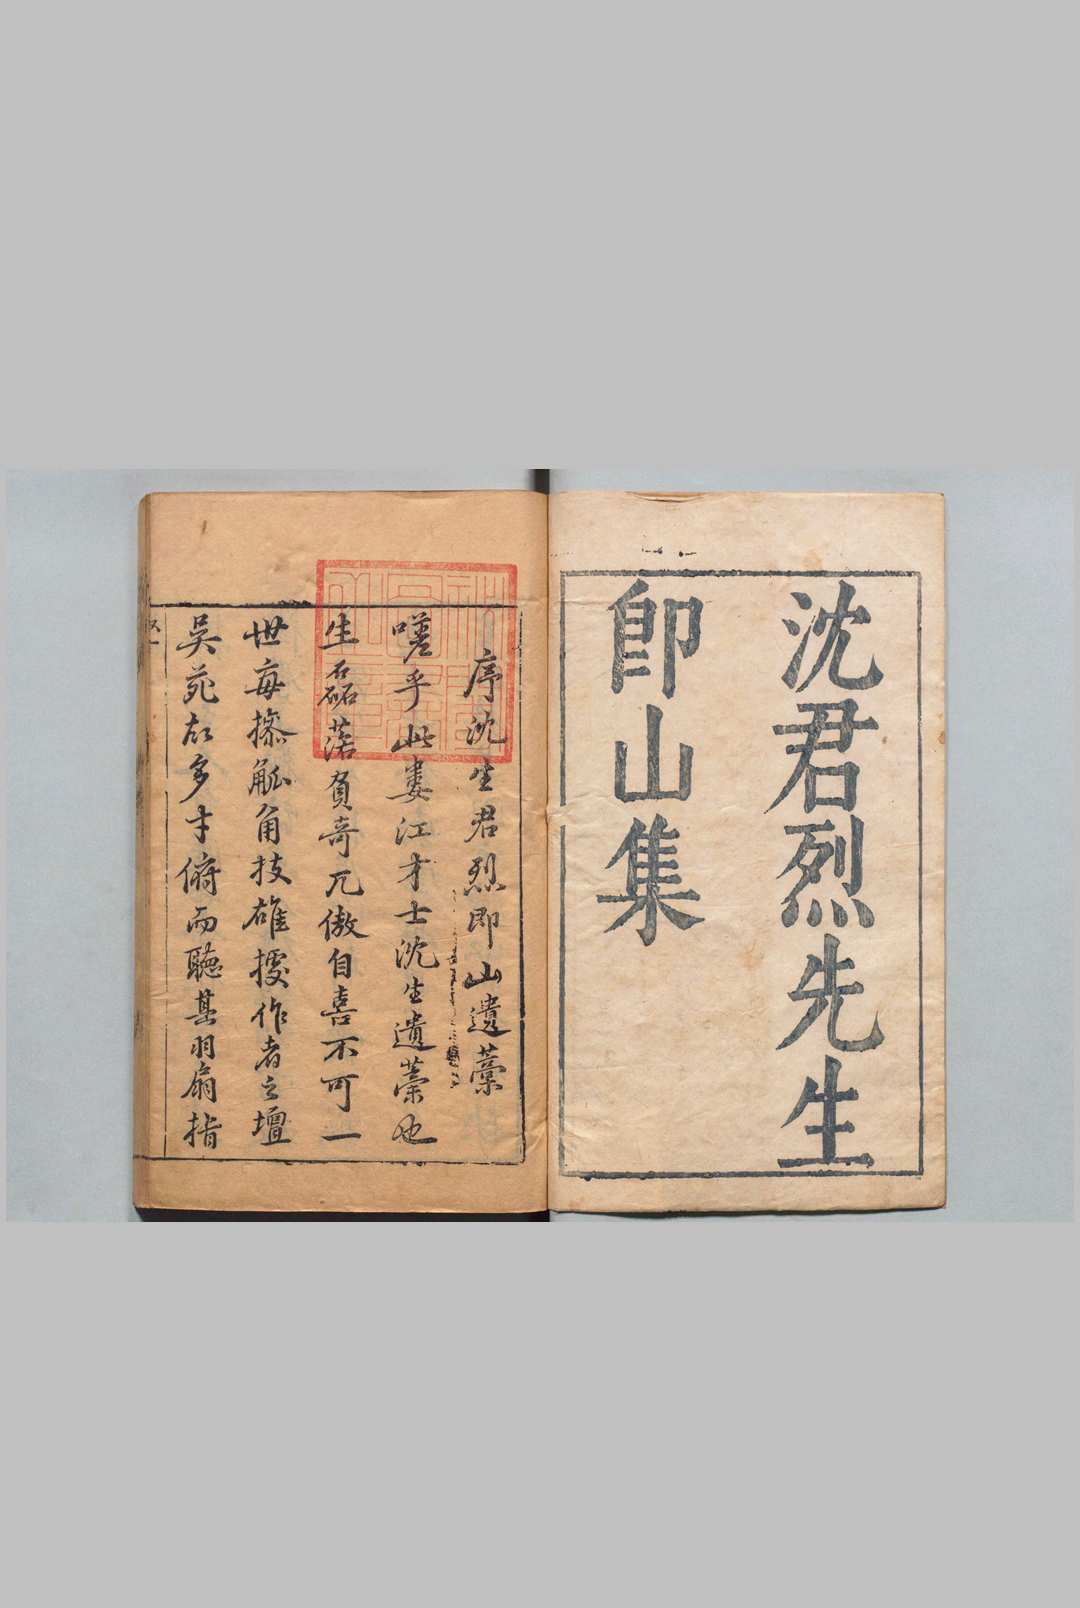 沈君烈先生
即山集
序沈生君烈即山遺藁
嗟乎此婁江才士沈生遺藁也
生磊落負奇兀傲自喜不可一
世每搽觚角技雄據作者之壇
吳苑故多才俯而聽其羽扇指
叙一